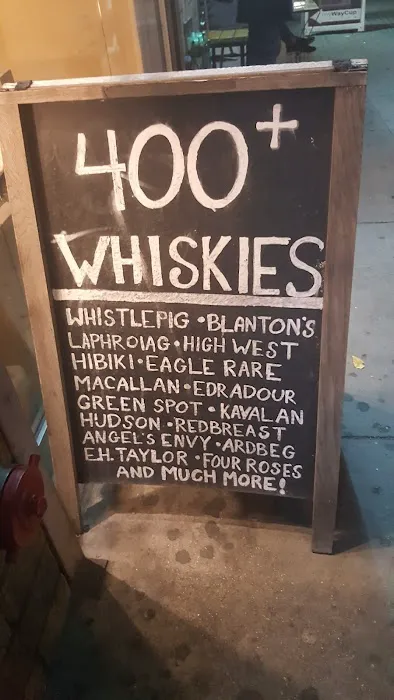 WayCup
400+
WHISKIES
WHISTLEPIG • BLANTON'S
LAPHROIAG • HIGH WEST
HIBIKI • EAGLE RARE
MACALLAN • EDRADOUR
GREEN SPOT • KAVALAN
HUDSON • REDBREAST
ANGEL'S ENVY • ARDBEG
E.H. TAYLOR • FOUR ROSES
AND MUCH MORE!